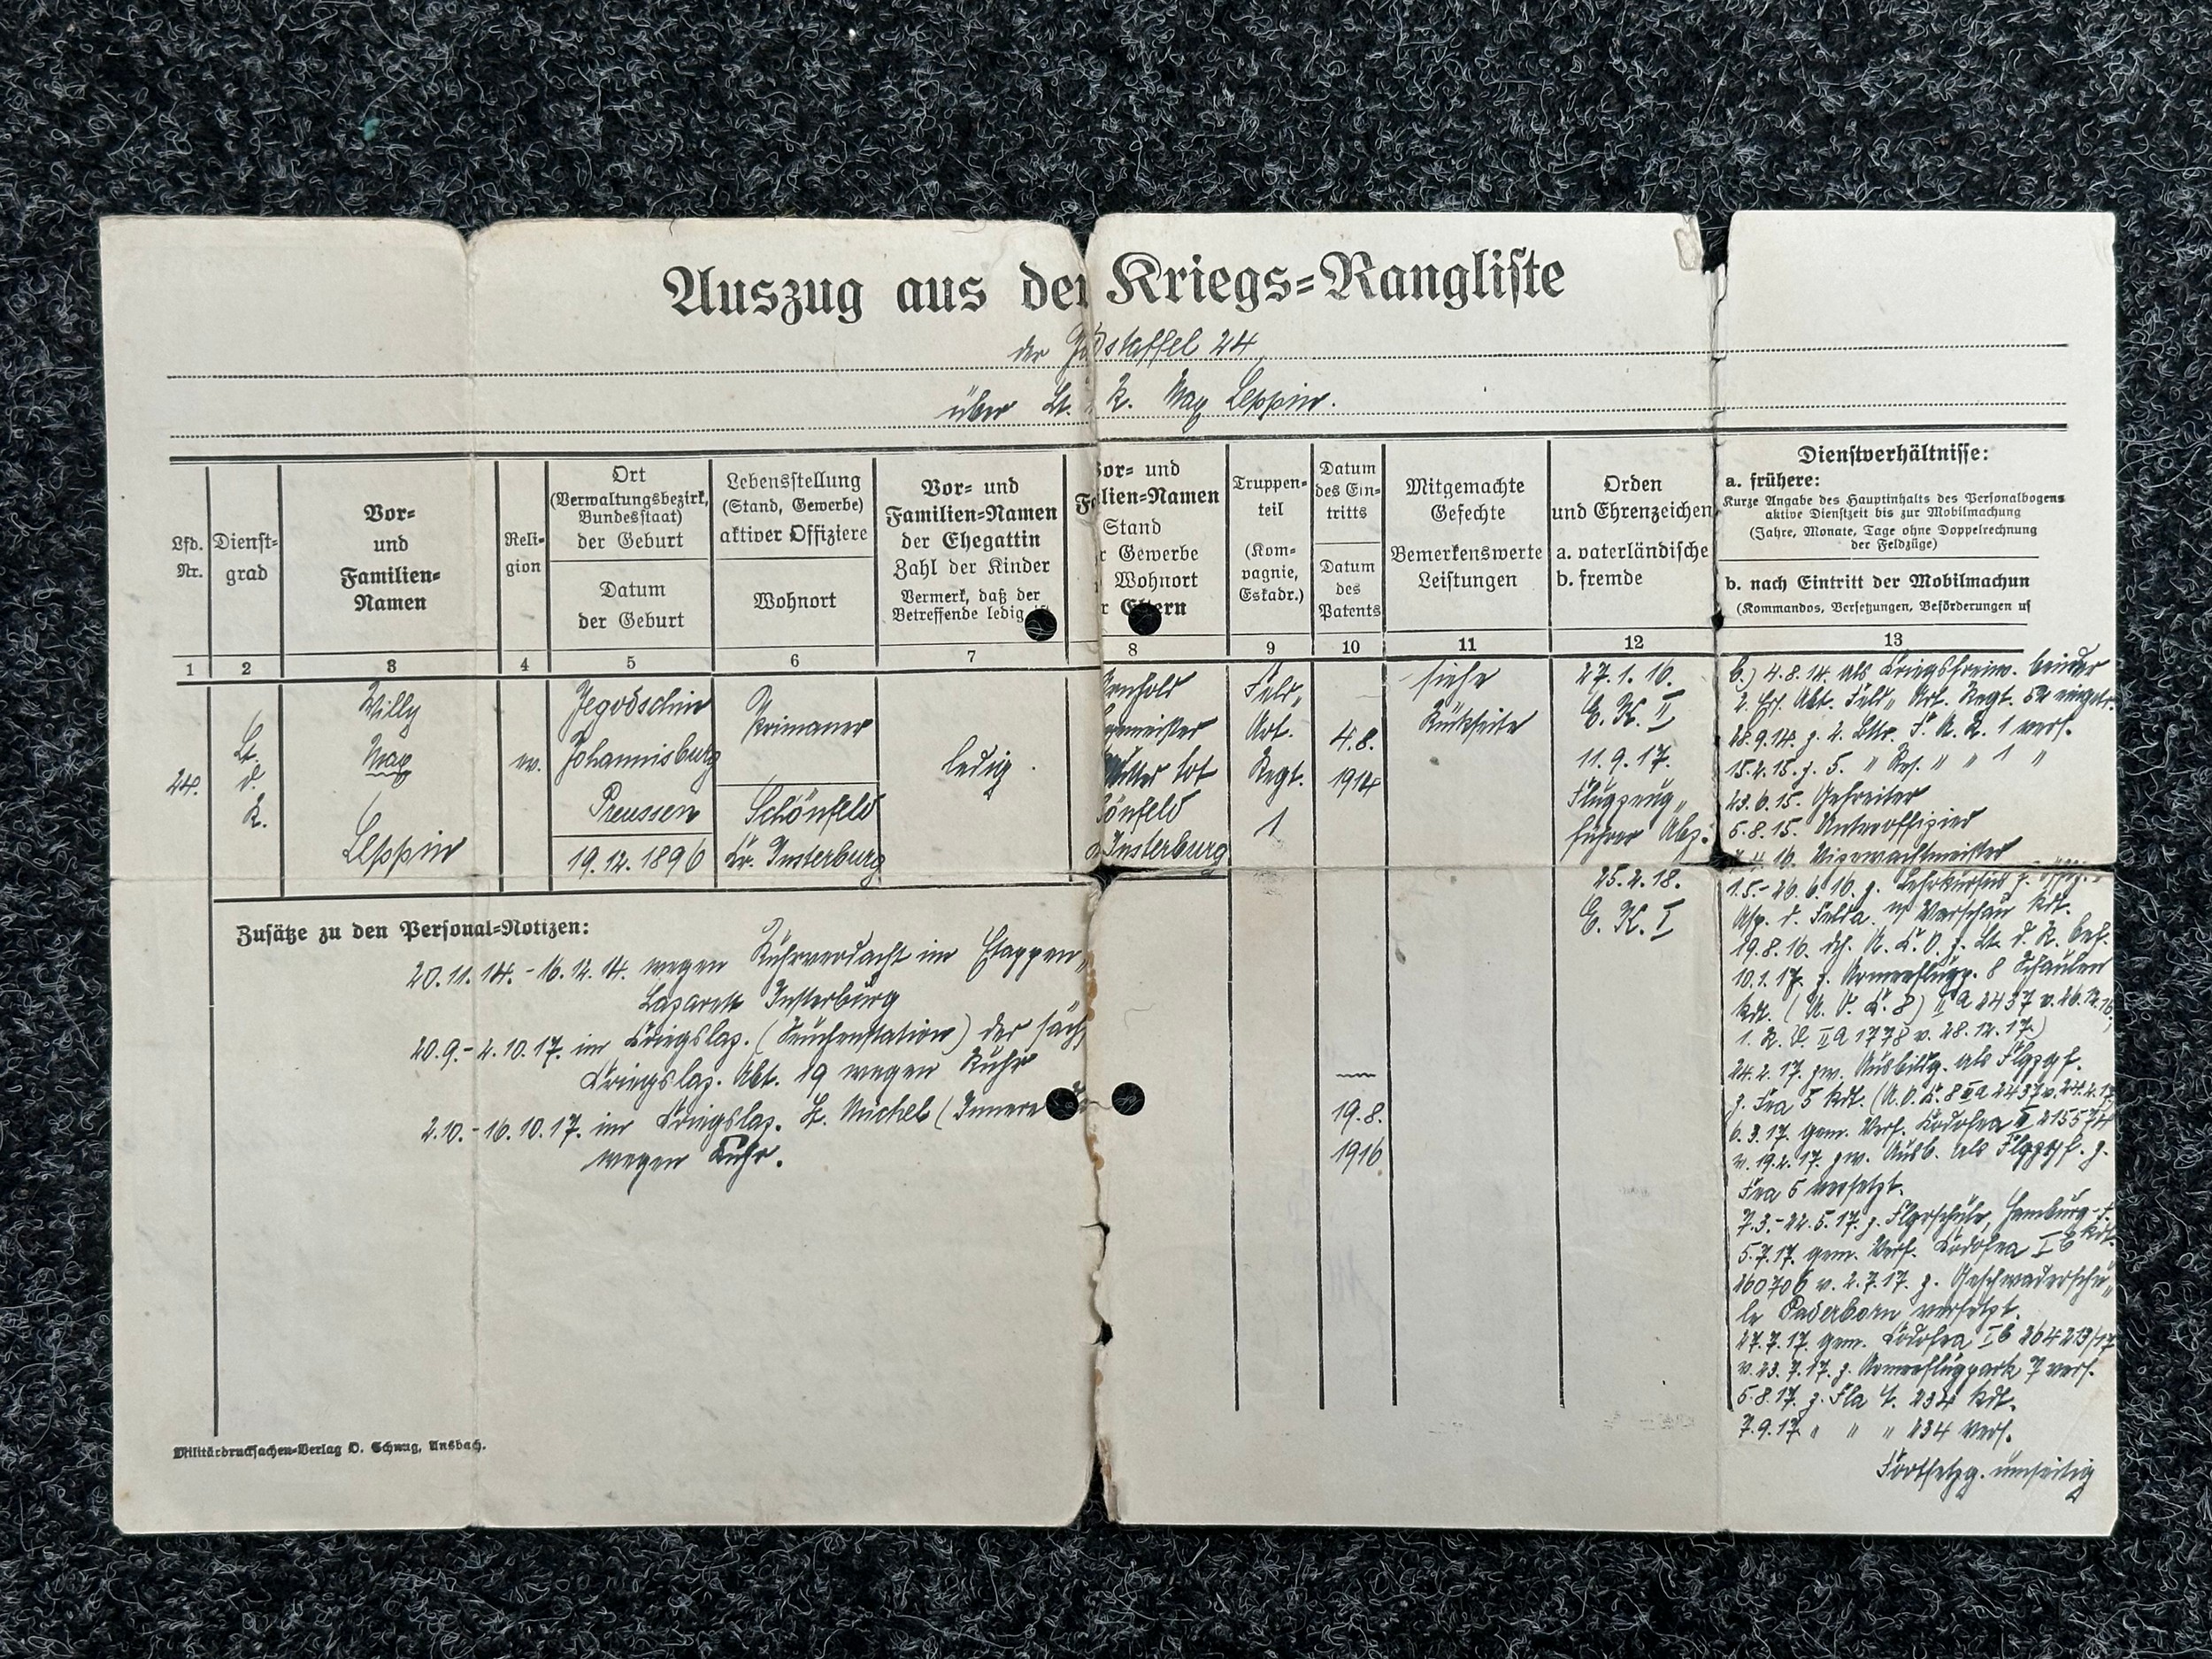 Auszug aus der Kriegs=Rangliste
der Jadstaffel 24
über Lt. R. Max Leppin.
Lfd. Nr.
Dienst=
grad
Vor=
und
Familien=
Namen
Reli=
gion
Ort
(Verwaltungsbezirk,
Bundesstaat)
der Geburt
Datum
der Geburt
Lebensstellung
(Stand, Gewerbe)
aktiver Offiziere
Wohnort
Vor= und
Familien=Namen
der Ehegattin
Zahl der Kinder
Vermerk, daß der
Betreffende ledig
Vor= und
Familien=Namen
Stand
Gewerbe
Wohnort
Eltern
Truppen=
teil
(Kom=
pagnie,
Eskadr.)
Datum
des Ein=
tritts
Datum
des
Patents
Mitgemachte
Gefechte
Bemerkenswerte
Leistungen
Orden
und Ehrenzeichen
a. vaterländische
b. fremde
Dienstverhältnisse:
a. frühere:
Kurze Angabe des Hauptinhalts des Personalbogens
aktive Dienstzeit bis zur Mobilmachung
(Jahre, Monate, Tage ohne Doppelrechnung
der Feldzüge)
b. nach Eintritt der Mobilmachun
(Kommandos, Versetzungen, Beförderungen us
1 2 3 4 5 6 7 8 9 10 11 12 13
24.
Lt.
d.
R.
Willy
Max
Leppin
ev.
Jegodschin
Johannisburg
Preussen
19.12.1896
Primaner
Schönfeld
Kr. Insterburg
ledig
Mutter tot
Schönfeld
Insterburg
Feld„
Art.
Regt.
1
4.8.
1914
19.8.
1916
siehe
Rückseite
27.1.16.
E. K. II
11.9.17.
Flugzeug„
führer Abz.
25.2.18.
E. K. I
b.) 4.8.14 als Kriegsfreiw. bei der
2. Ers. Abt. Feld„ Art. Regt. 52 eingetr.
28.9.14 z. 2. Bttr. F. A. R. 1 vers.
15.2.15. z. 5. „ Res. „ „ 1 „
23.6.15. Gefreiter
5.8.15. Unteroffizier
16. Vizewachtmeister
1.5.-26.6.16. z. Lehrkursus f. Offiz.„
Asp. d. Felda. Warschau kdt.
19.8.16. dch. A. K. O. z. Lt. d. R. bef.
10.1.17. z. Armeeflugp. 8 Schaulen
kdt. (A. O. K. 8) II a 2437 v. 26.12.16,
II a 1778 v. 28.12.17.)
24.2.17. zw. Ausbildg. als Flgzgf.
z. Fea 5 kdt. (A.O.K. 8 IIa 2437 v. 24.2.17
6.3.17. gem. Verf. Kodofea 215574
v. 19.2.17. zw. Ausb. als Flgzgf. z.
Fea 5 versetzt.
7.3.-22.5.17. z. Flgerschule Hamburg-F. kdt.
5.7.17. gem. Verf. Kodofea I b
260706 v. 2.7.17. z. Geschwaderschu„
le Paderborn versetzt.
27.7.17. gem. Kodofea I b 264213/17
v. 23.7.17. z. Armeeflugpark 7 vers.
5.8.17. z. Fla A. 234 kdt.
7.9.17. „ „ „ 234 vers.
Fortsetzg. umseitig
Zusätze zu den Personal=Notizen:
20.11.14.-16.12.14. wegen Ruhrverdacht im Etappen„
Lazarett Insterburg
20.9.-2.10.17. im Kriegslaz. (Seuchenstation) der sächs
Kriegslaz. Abt. 19 wegen Ruhr
2.10.-16.10.17. im Kriegslaz. St. Michel (Innere
wegen Ruhr.
Militärdrucksachen=Verlag O. Schnug, Ansbach.